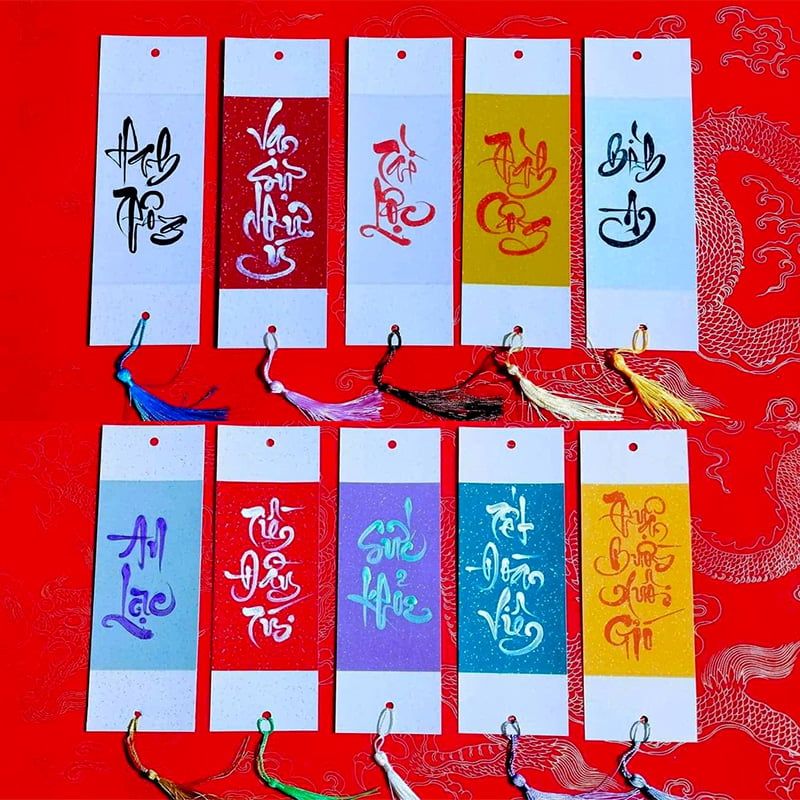 Hạnh
Phúc
Vạn
Sự
Như
Ý
Tài
Lộc
Thành
Công
Bình
An
An
Lạc
Tiền
Đầy
Túi
Sức
Khoẻ
Tết
Đoàn
Viên
Thuận
Buồm
Xuôi
Gió